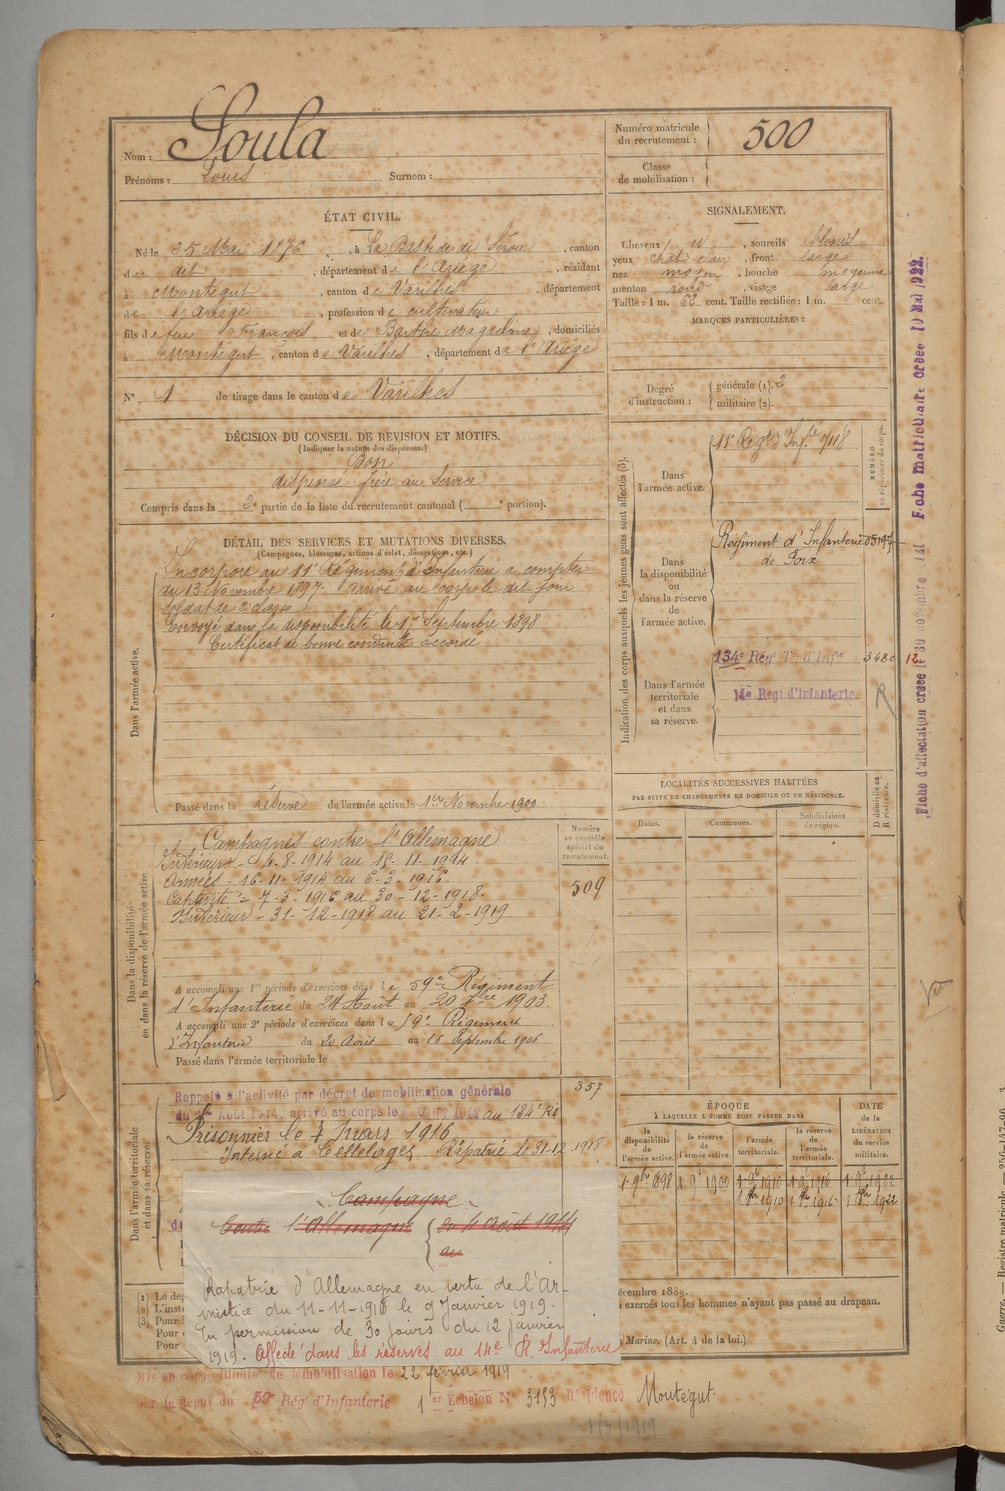 Nom : Soula
Prénoms : Louis Surnom :
Numéro matricule du recrutement : 500
Classe de mobilisation :
ÉTAT CIVIL.
Né le 25 Mai 1876, à La Bastide de Sérou, canton
du dit, département de l'Ariège, résidant
à Montégut, canton de Varilhes, département
de l'Ariège, profession de cultivateur
fils de feu François et de Barthe Magdelaine, domiciliés
à Montégut, canton de Varilhes, département de l'Ariège
N° 1 de tirage dans le canton de Varilhes
SIGNALEMENT.
Cheveux et, sourcils blonds
yeux chat. clair, front large
nez moyen, bouche moyenne
menton rond, visage large
Taille : 1 m. 62 cent. Taille rectifiée : 1 m. cent.
MARQUES PARTICULIÈRES :
Degré d'instruction : générale (1). 3
militaire (2).
DÉCISION DU CONSEIL DE REVISION ET MOTIFS.
(Indiquer la nature des dispenses.)
Bon
dispensé frère au service
Compris dans la 2e partie de la liste du recrutement cantonal ( e portion).
DÉTAIL DES SERVICES ET MUTATIONS DIVERSES.
(Campagnes, blessures, actions d'éclat, décorations, etc.)
Dans l'armée active.
Incorporé au 11e Régiment d'Infanterie à compter
du 13 Novembre 1897. arrivé au corps le dit jour
soldat de 2e classe
Envoyé dans la disponibilité le 17 Septembre 1898
Certificat de bonne conduite accordé
Passé dans la réserve de l'armée active le 1er Novembre 1900.
Indication des corps auxquels les jeunes gens sont affectés (3).
NUMÉRO au répertoire du corps.
Dans l'armée active.
11e Régt d'Infie 7118
Dans la disponibilité ou dans la réserve de l'armée active.
Régiment d'Infanterie 05197
de Foix
Dans l'armée territoriale et dans sa réserve.
134e Rég Tal d'Infie 3480 12
14e Régt d'Infanterie
R
LOCALITÉS SUCCESSIVES HABITÉES
PAR SUITE DE CHANGEMENTS DE DOMICILE OU DE RÉSIDENCE.
Dates. Communes. Subdivisions de région. D domicile ou R résidence.
Dans la disponibilité ou dans la réserve de l'armée active.
Campagnes contre l'Allemagne
Intérieur - 4-8-1914 au 15-11-1914
Armées - 16-11-1914 au 6-3-1916.
Captivité - 7-3-1916 au 30-12-1918.
Intérieur - 31-12-1918 au 21-2-1919.
Numéro au contrôle spécial du recrutement.
509
A accompli une 1re période d'exercices dans le 59e Régiment
d'Infanterie du 24 Août au 20 7bre 1903.
A accompli une 2e période d'exercices dans le 59e Régiment
d'Infanterie du 20 Août au 16 Septembre 1906
Passé dans l'armée territoriale le
357
Dans l'armée territoriale et dans sa réserve.
Rappelé à l'activité par décret de mobilisation générale
du 1er Août 1914, arrivé au corps le au 134e RI
Prisonnier le 7 mars 1916
Interné à Rapatrié le 31-12-1918
Campagne
Contre l'Allemagne du 4 Août 1914
au
Rapatrié d'Allemagne en vertu de l'Ar-
mistice du 11-11-1918 le 9 Janvier 1919.
En permission de 30 jours du 12 janvier
1919. Affecté dans les réserves au 14e R. Infanterie
ÉPOQUE
À LAQUELLE L'HOMME DOIT PASSER DANS
la disponibilité de l'armée active. la réserve de l'armée active. l'armée territoriale. la réserve de l'armée territoriale.
DATE de la LIBÉRATION du service militaire.
1 9bre 1898 1 9e 1900 1 9e 1910 1 9e 1916 1 9e 1922
1 8bre 1910 1 8bre 1916 1 8bre 1922
écembre 1889.
exercés tous les hommes n'ayant pas passé au drapeau.
Marine. (Art. 4 de la loi.)
(1) Le de
(2) L'inst
(3) Pour
Pour
Pour
Mis en congé illimité de démobilisation le 22 février 1919
par le dépôt du 59e Rég' d'Infanterie 1er Echelon N° 3153 Résidence Montégut.
1/3/1919
Fiche d'affectation créée le 30 novembre Fiche matriculaire créée 10 Mai 1922.
Vu